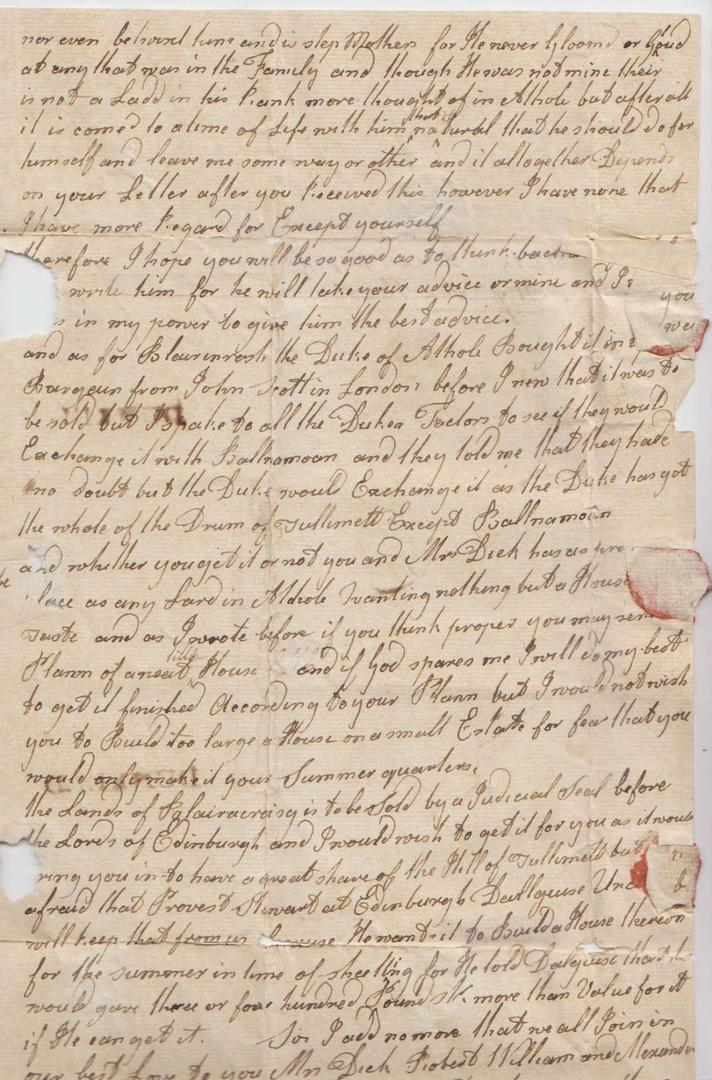 nor even behind him and is step Mothers for He never Gloomd or
at any that was in the Family and though He was not mine their
is not a Ladd in his Rank more thought of in Athole but after all
it is comed to a time of Life with him that natural that he should do for
himself and leave me some way or other and it altogether Depends
on your Letter after you Received this however I have none that
I have more Regard for Except yourself
therefore I hope you will be so good as to think
write him for he will take your advice or mine and
you
s in my power to give him the best advice.
and as for Blairinrosh the Duke of Athole Bought it in
Bargeun from John Scott in London before I new that it was to
be sold but I spake to all the Dukes Factors to see if they would
Exchange it with Ballnamoan and they told me that they hade
no doubt but the Duke would Exchange it as the Duke has got
the whole of the Drum of Tullimett Except Ballnamoan
and whether you get it or not you and Mrs Dick has as
lace as any Lard in Athole Wanting nothing but a House
taste and as I wrote before if you think proper you may
Plann of a neat little House and if God spares me I will do my best
to get it finished According to your Plann but I would not wish
you to Build too large a House on a small Estate for fear that you
would only make it your Summer quarters.
the Lands of Blairacroisg is to be Sold by a Judicial Seal before
the Lords of Edinburgh and I would wish to get it for you as it would
ring you in to have a great share of the Hill of Tullimett but
afraid that Provest Stewart at Edinburgh Dallguise
will keep that from us because He wants it to Build a House thereon
for the summer in time of sheelling for He told Dalguise that he
would gave three or four hundred Pound st. more than Value for it
if He can get it. Sir I add no more that we all Join in
our best Love to you Mrs Dick Robert William and Alexander